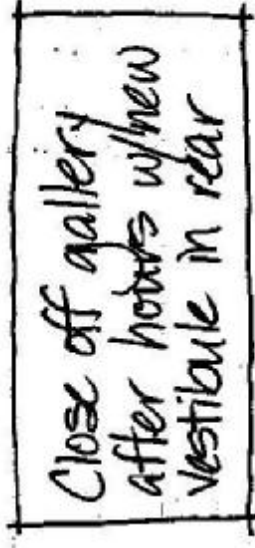 Close off gallery
after hours w/new
vestibule in rear